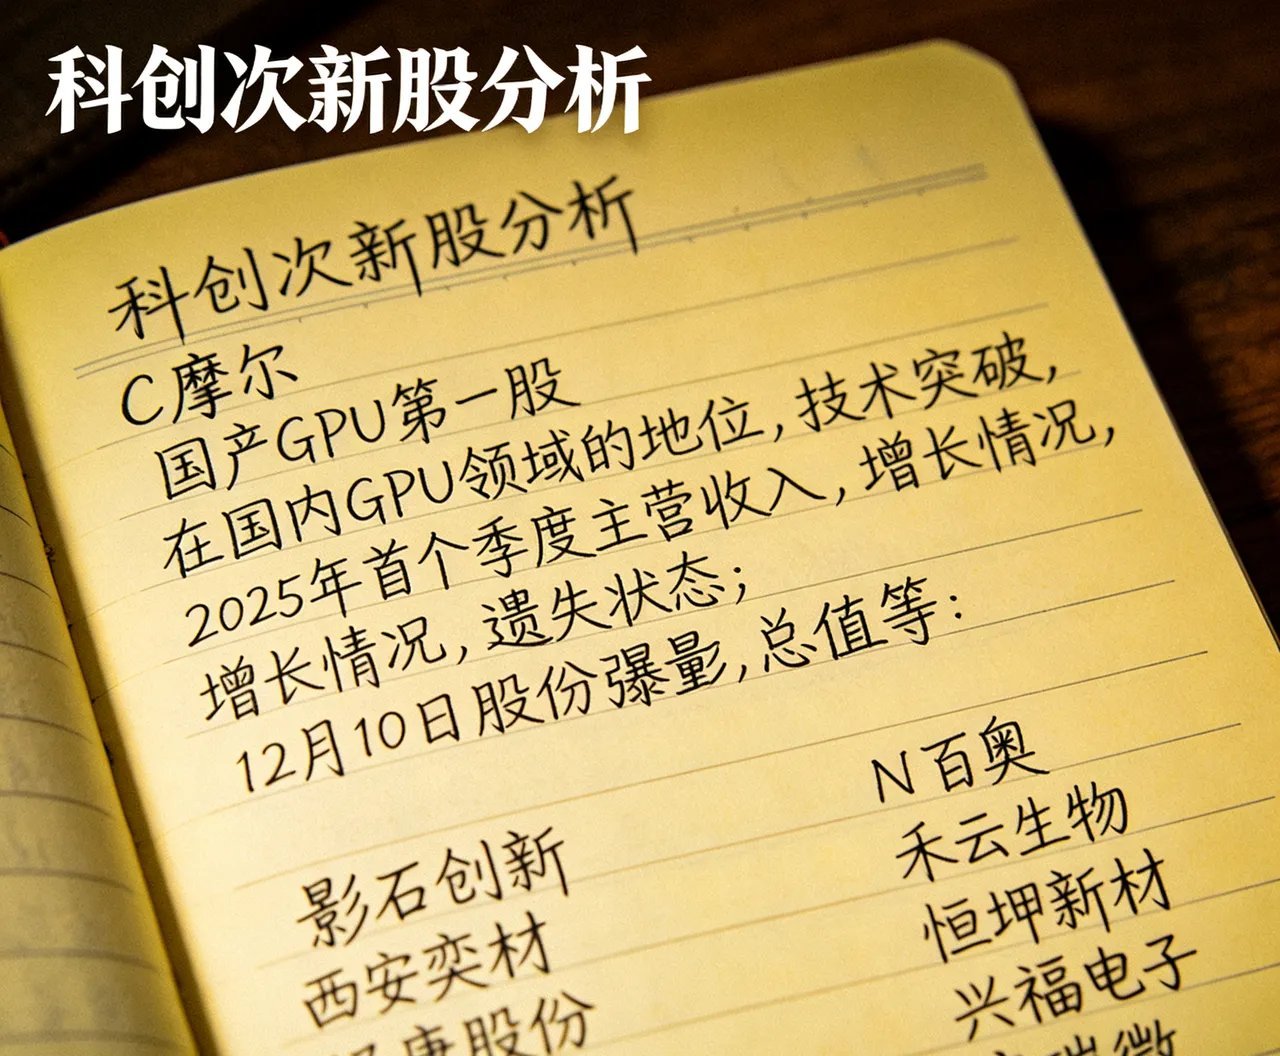 科创次新股分析
科创次新股分析
C摩尔
国产GPU第一股
在国内GPU领域的地位,技术突破,
2025年首个季度主营收入,增长情况,
增长情况,遗失状态;
12月10日股份骤量,总值等:
N百奥
影石创新
禾云生物
西安奕材
恒坤新材
股份
兴福电子
微